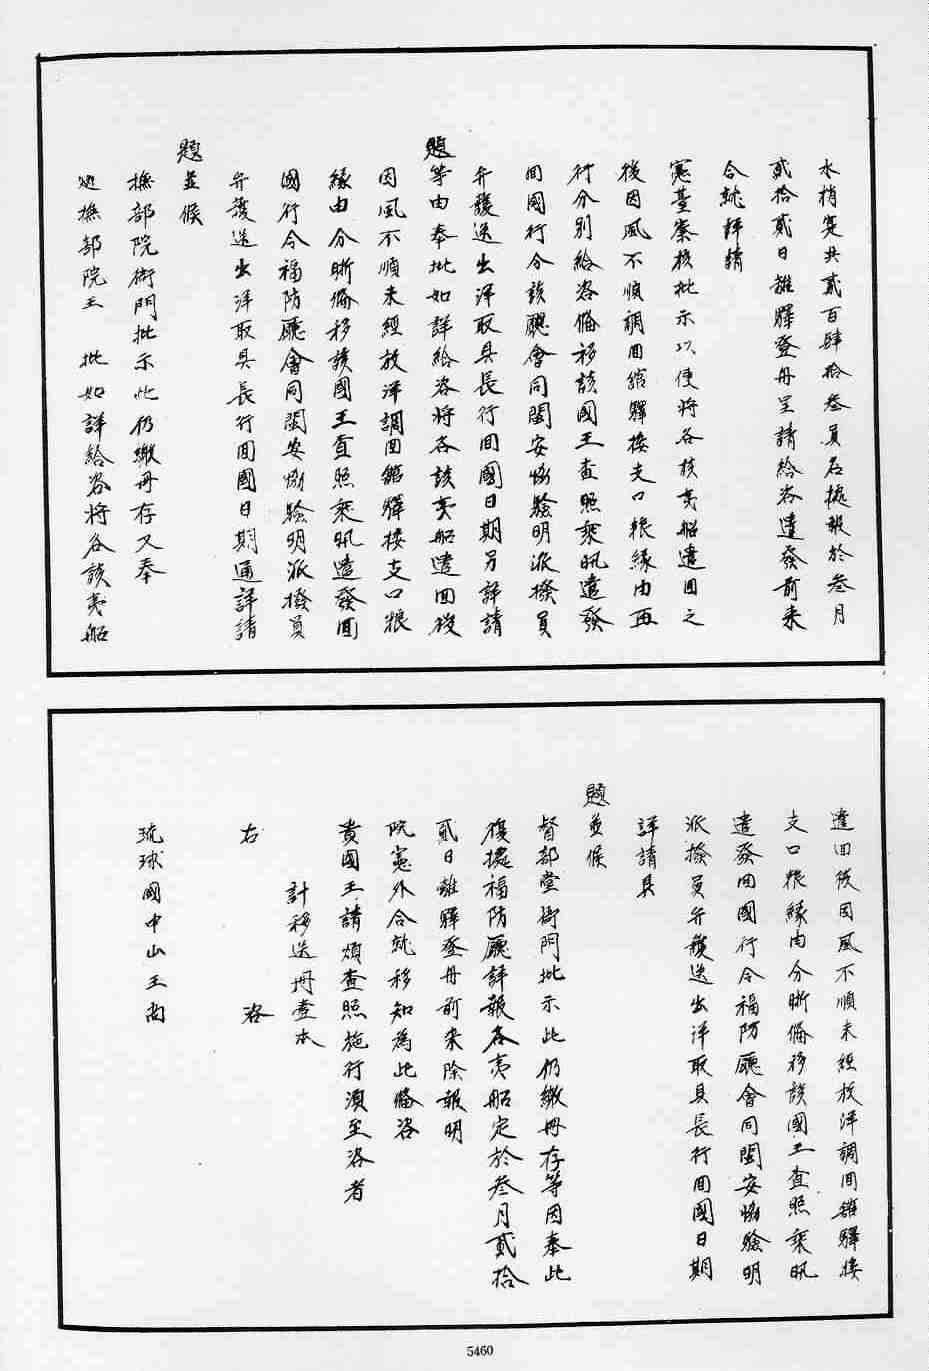 水梢寔共貳百肆拾叁員名據報於叁月
貳拾貳日離驛登舟呈請給咨遣發前來
合就詳請
憲臺察核批示以便將各該夷船遣回之
後因風不順調回舘驛接支口粮緣由再
行分別給咨備移該國王查照乘汛遣發
回國行令該廳會同閩安協驗明派撥員
弁護送出洋取具長行回國日期另詳請
題等由奉批如詳給咨將各該夷船遣回後
因風不順未經放洋調回舘驛接支口粮
緣由分晰備移該國王查照乘汛遣發回
國行令福防廳會同閩安協驗明派撥員
弁護送出洋取具長行回國日期通詳請
題並候
撫部院衙門批示此仍繳冊存又奉
巡撫部院王　批如詳給咨將各該夷船
遣回後因風不順未經放洋調回舘驛接
支口粮緣由分晰備移該國王查照乘汛
遣發回國行令福防廳會同閩安協驗明
派撥員弁護送出洋取具長行回國日期
詳請具
題並候
督部堂衙門批示此仍繳冊存等因奉此
復據福防廳詳報各夷船定於叁月貳拾
貳日離驛登舟前來除報明
院憲外合就移知為此備咨
貴國王請煩查照施行須至咨者
計移送冊壹本
右　　　咨
琉球國中山王尚
5460